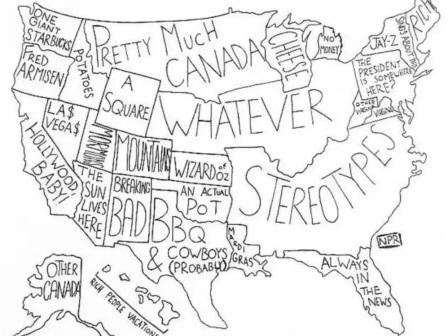 ONE
GIANT
STARBUCKS
FRED
ARMISEN
POTATOES
PRETTY MUCH
CANADA
CHEESE
NO
MONEY
JAY-Z
THE
PRESIDENT
IS SOMEWHERE
HERE?
OTHER
VIRGINIA
VIRGINIA
A
SQUARE
WHATEVER
LA$
VEGA$
HOLLYWOOD,
BABY!
MOUNTAINS
WIZARD OF
OZ
STEREOTYPES
THE
SUN
LIVES
HERE
BREAKING
BAD
AN ACTUAL
POT
BBQ
& COWBOYS
(PROBABLY)
MARDI
GRAS
NPR
ALWAYS
IN
THE
NEWS
OTHER
CANADA
RICH PEOPLE VACATION